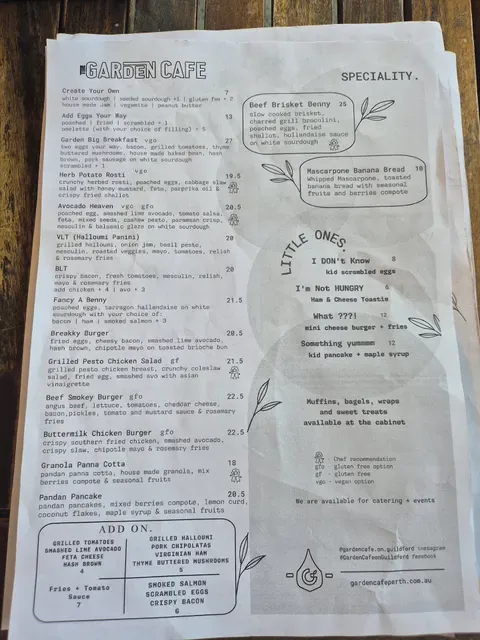 THE GARDEN CAFE
Create Your Own 7
white sourdough | seeded sourdough +1 | gluten fee + 2
house made Jam | vegemite | peanut butter
Add Eggs Your Way 13
poached | fried | scrambled + 1
omelette (with your choice of filling) + 5
Garden Big Breakfast vgo 27
two eggs your way, bacon, grilled tomatoes, thyme
buttered mushrooms, house made baked bean, hash
brown, pork sausage on white sourdough
scrambled + 1
vgo
Herb Potato Rosti 19.5
crunchy herbed rosti, poached eggs, cabbage slaw
salad with honey mustard, feta, paprika oil &
crispy fried shallot
Avocado Heaven vgo gfo 20.5
poached egg, smashed lime avocado, tomato salsa,
feta, mixed seeds, cashew pesto, parmesan crisp,
mesculin & balsamic glaze on white sourdough
VLT (Halloumi Panini) 20
grilled halloumi, onion jam, basil pesto,
mesculin, roasted veggies, mayo, tomatoes, relish
& rosemary fries
BLT 20
crispy bacon, fresh tomatoes, mesculin, relish,
mayo & rosemary fries
add chicken + 4 | avo + 3
Fancy A Benny 21.5
poached eggs, tarragon hollandaise on white
sourdough with your choice of:
bacon | ham | smoked salmon + 3
Breakky Burger 20.5
fried eggs, cheesy bacon, smashed lime avocado,
hash brown, chipotle mayo on toasted brioche bun
Grilled Pesto Chicken Salad gf 21.5
grilled pesto chicken breast, crunchy coleslaw
salad, fried egg, smashed avo with asian
vinaigrette
Beef Smokey Burger gfo 22.5
angus beef, lettuce, tomatoes, cheddar cheese,
bacon,pickles, tomato and mustard sauce & rosemary
fries
Buttermilk Chicken Burger gfo 22.5
crispy southern fried chicken, smashed avocado,
crispy slaw, chipotle mayo & rosemary fries
Granola Panna Cotta 18
pandan panna cotta, house made granola, mix
berries compote & seasonal fruits
Pandan Pancake 20.5
pandan pancakes, mixed berries compote, lemon curd,
coconut flakes, maple syrup & seasonal fruits
ADD ON.
GRILLED TOMATOES
SMASHED LIME AVOCADO
FETA CHEESE
HASH BROWN
4
GRILLED HALLOUMI
PORK CHIPOLATAS
VIRGINIAN HAM
THYME BUTTERED MUSHROOMS
5
Fries + Tomato
Sauce
7
SMOKED SALMON
SCRAMBLED EGGS
CRISPY BACON
6
SPECIALITY.
Beef Brisket Benny 25
slow cooked brisket,
charred grill brocolini,
poached eggs, fried
shallot, hollandaise sauce
on white sourdough
Mascarpone Banana Bread 18
Whipped Mascarpone, toasted
banana bread with seasonal
fruits and berries compote
LITTLE ONES.
I DON't Know 8
kid scrambled eggs
I'm Not HUNGRY 6
Ham & Cheese Toastie
What ???! 12
mini cheese burger + fries
Something yummmm 12
kid pancake + maple syrup
Muffins, bagels, wraps
and sweet treats
available at the cabinet
Chef recommendation
gfo - gluten free option
gf - gluten free
vgo - vegan option
We are available for catering + events
@gardencafe.on.guildford instagram
@GardenCafeonGuildford facebook
gardencafeperth.com.au